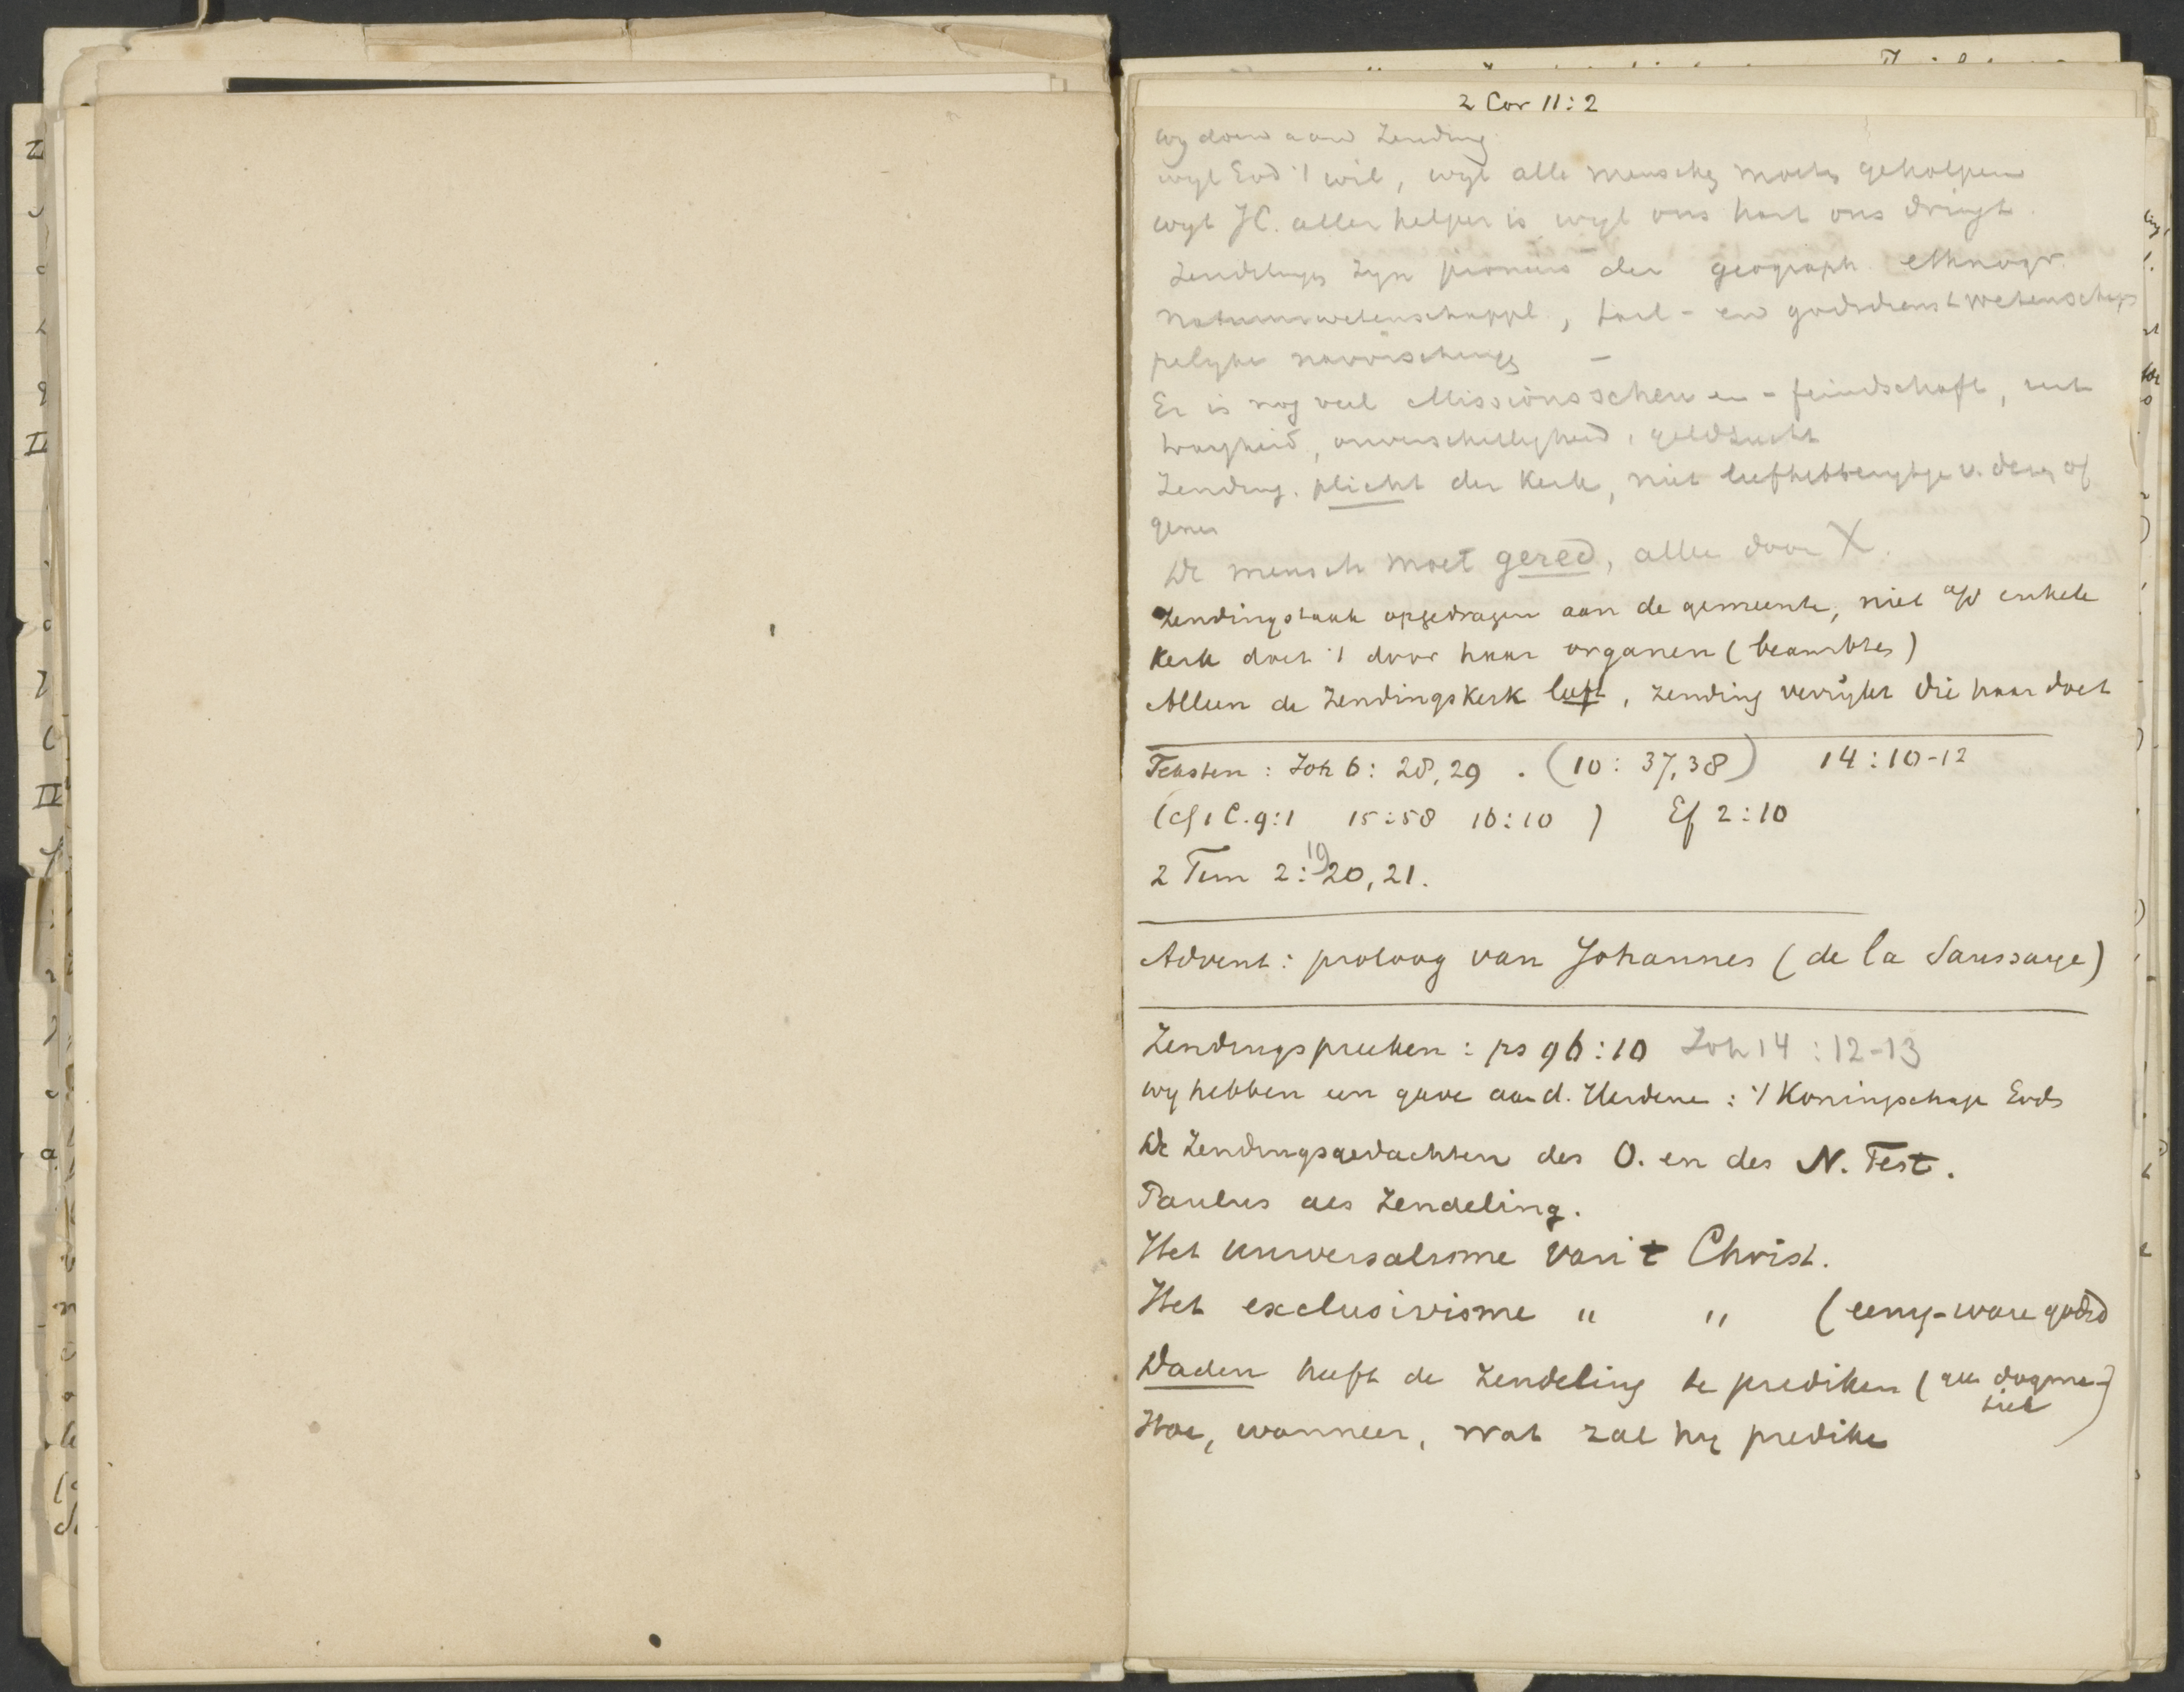 2 Cor 11:2
wy doen aan Zending
wyl God 't wil, wyl alle menschen moeten geholpen
wyl JC. aller helper is wyl ons hart ons dringt.
Zendelingen zyn pioniers der geograph. ethnogr.
natuurwetenschappl., taal- en godsdienstwetenschap
pelyke navorschingen –
Er is nog veel Missionsscheu en -feindschaft, uit
traagheid, onverschilligheid, geldzucht
Zending. plicht der Kerk, niet liefhebberytje v. dezen of
genen
De mensch moet gered, alle door X.
Zendingstaak opgedragen aan de gemeente, niet enkele
Kerk doet 't door haar organen (beambten)
Alleen de Zendingskerk leeft, zending verrykt die haar doet
Teksten : Joh 6: 28,29 . (10: 37,38) 14:10-12
(cf 1 C. 9:1 15:58 16:10 ) Ef 2:10
2 Tim 2: 19 20, 21.
Advent: proloog van Johannes (de la Saussaye)
Zendingspreeken : ps 96:10 Joh 14 : 12-13
wy hebben een gave aan d. Heidenen : 't Koningschap Gods
De Zendingsgedachten des O. en des N. Test.
Paulus als Zendeling.
Het universalisme van 't Christ.
Het exclusivisme " " (eenig-ware godsd
Daden heeft de Zendeling te prediken (geen dogma-
tiek)
Hoe, wanneer, wat zal hy prediken